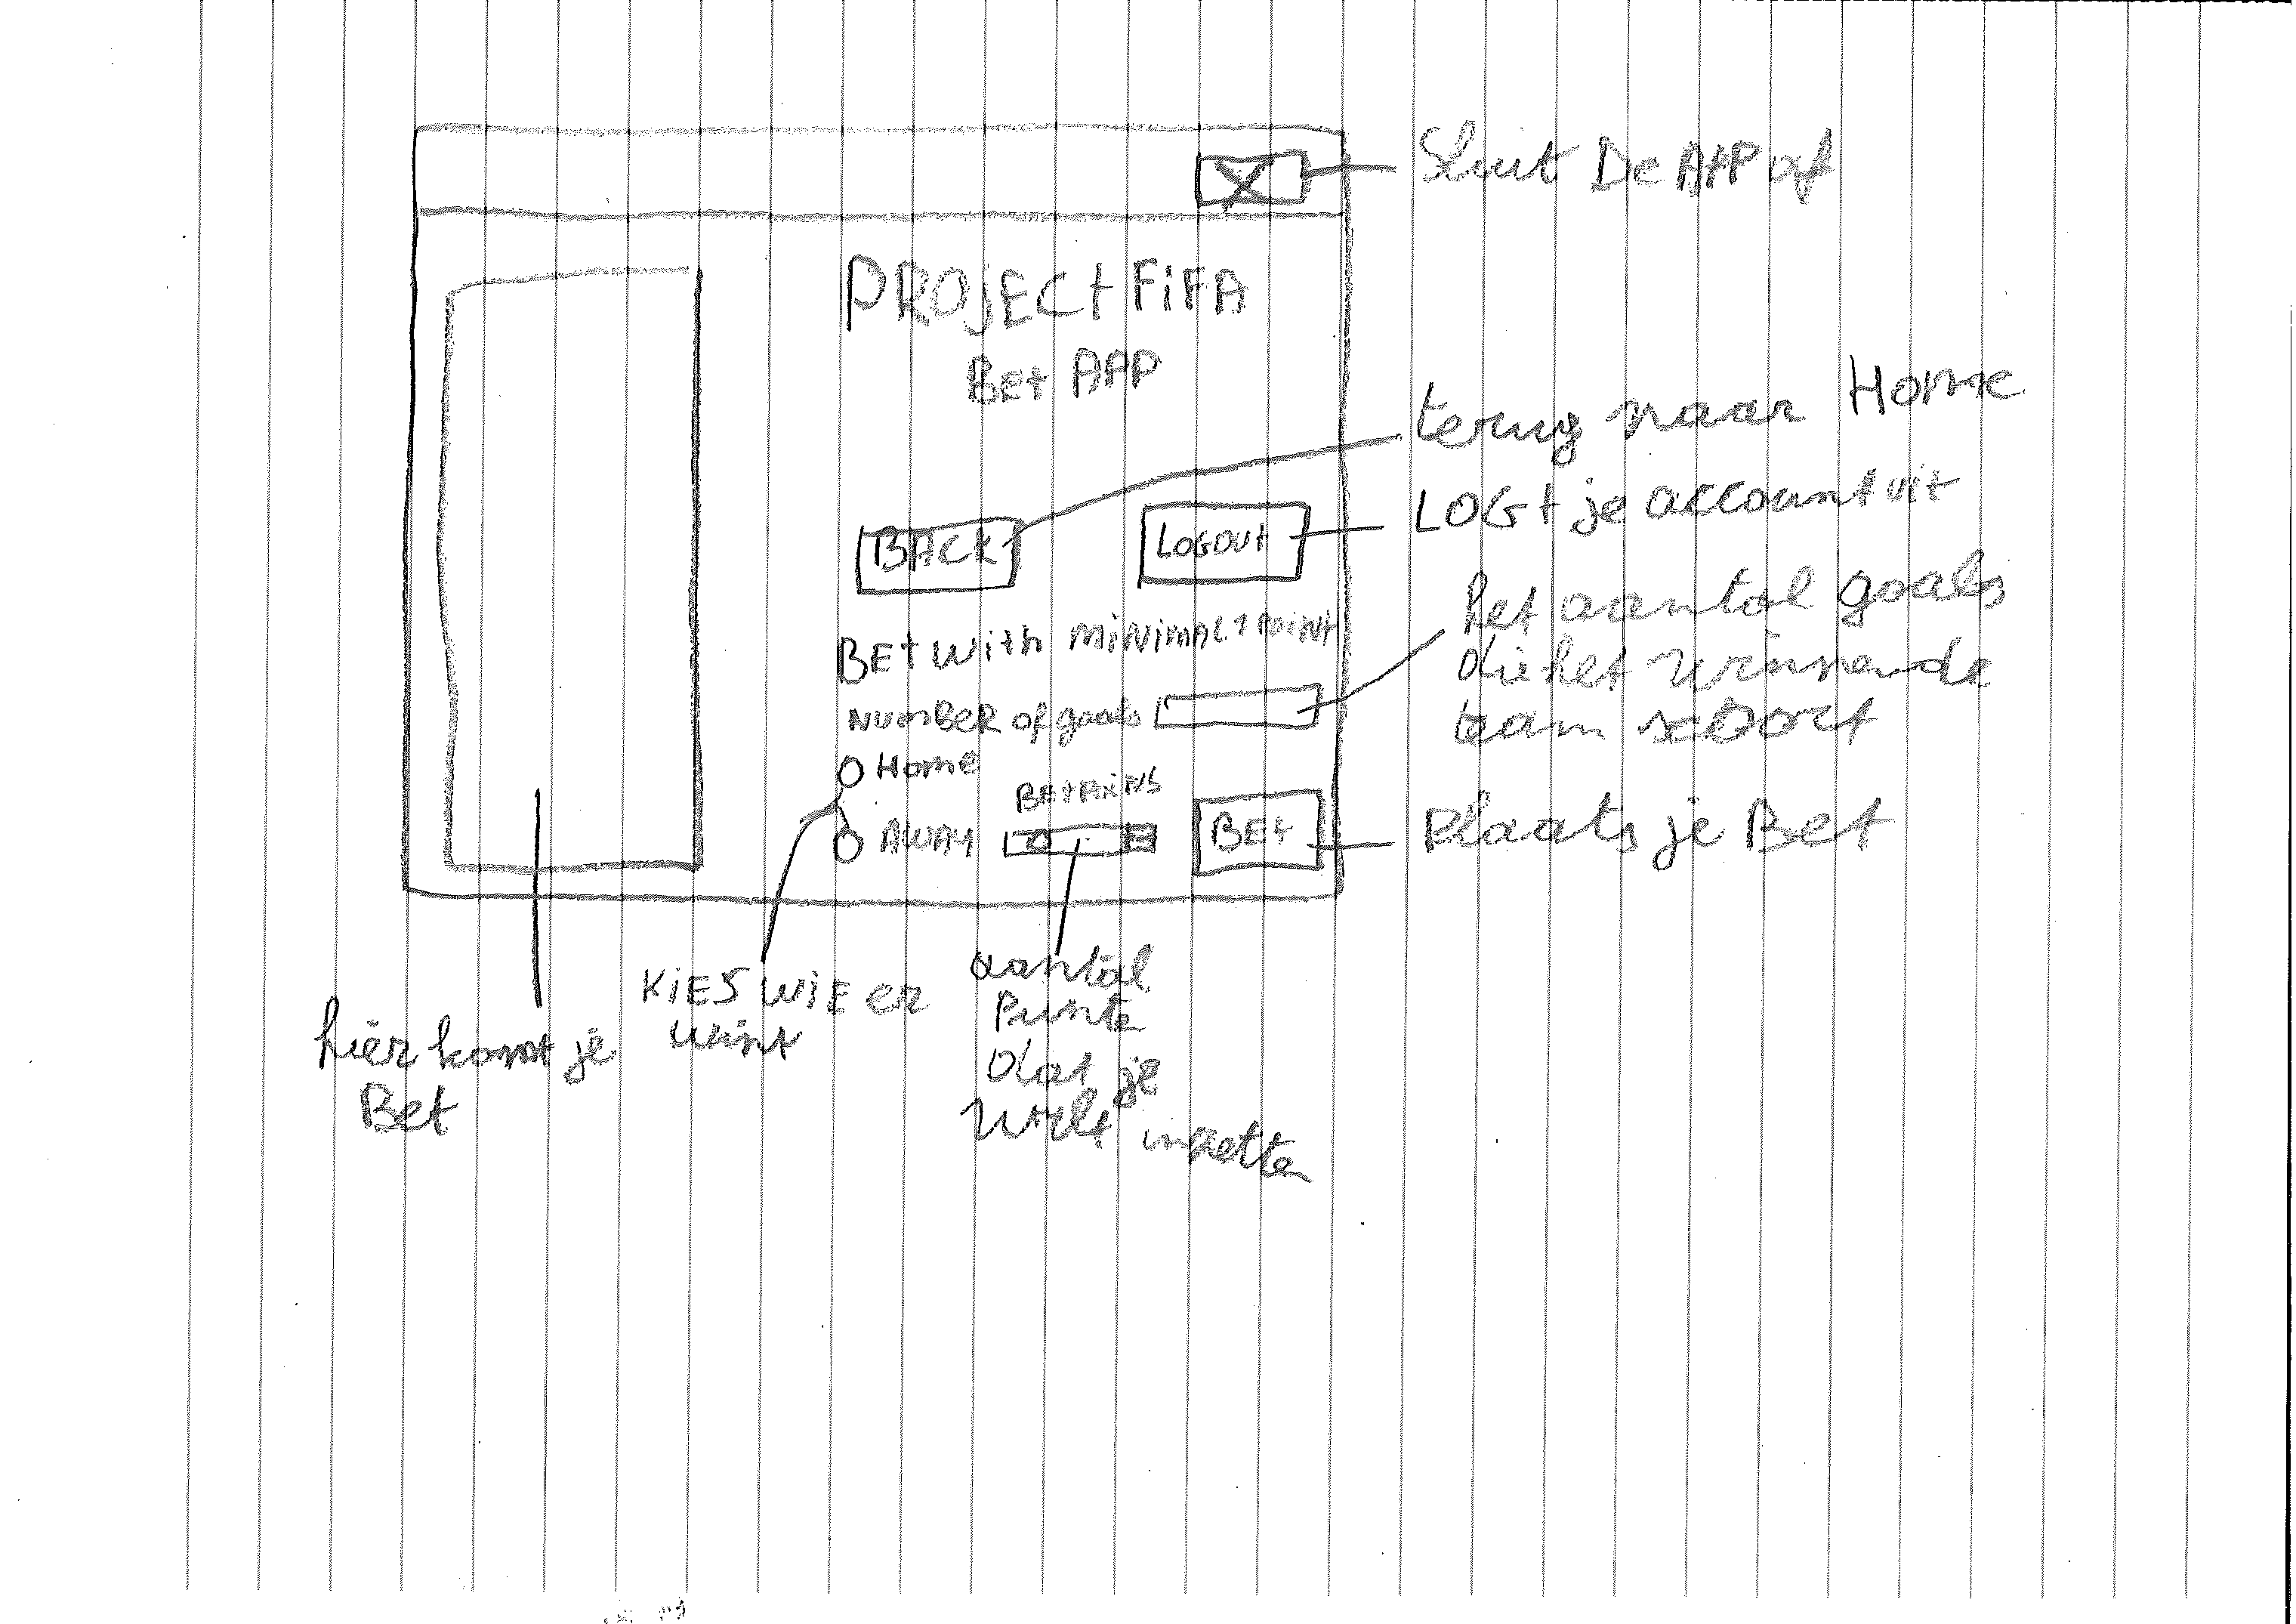 X
Sluit De APP af
PROjECt FiFA
Bet APP
terug naar Home
BACK
LOGOUt
LOGt je account uit
BEt With MiNiMAL 1 POiNt
het aantal goals
die het winnende
team scoort
NUMBER of goals
O Home
BEtPOiNtS
O AWAY
0
BEt
Plaats je Bet
KiES WiE er
wint
aantal
Punten
dat je
wilt inzetten
hier komt je
Bet